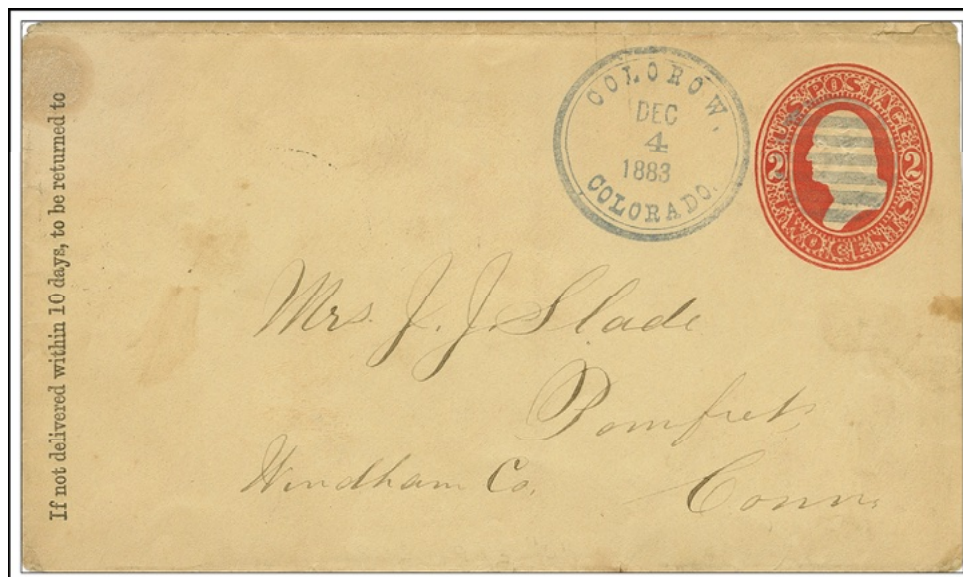 If not delivered within 10 days, to be returned to
COLOROW.
DEC
4
1883
COLORADO.
U.S. POSTAGE
2 2
TWO CENTS
Mrs. J. J. Slade
Pomfret
Windham Co. Conn.